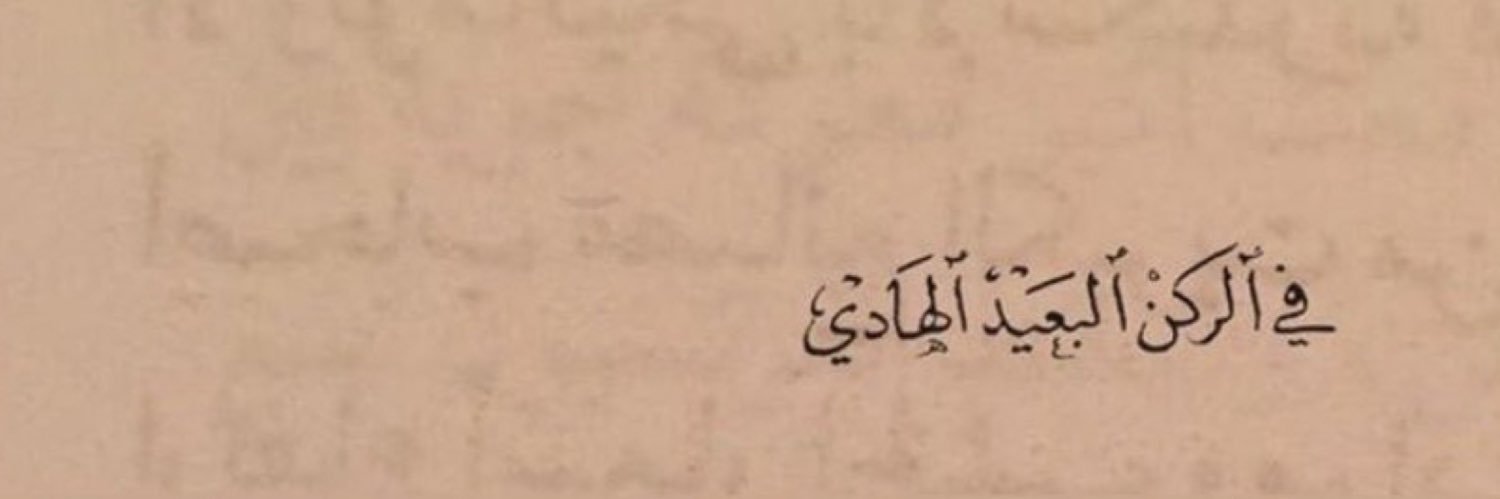 في ٱلركنْ ٱلبعَيدْ ٱلهَادي